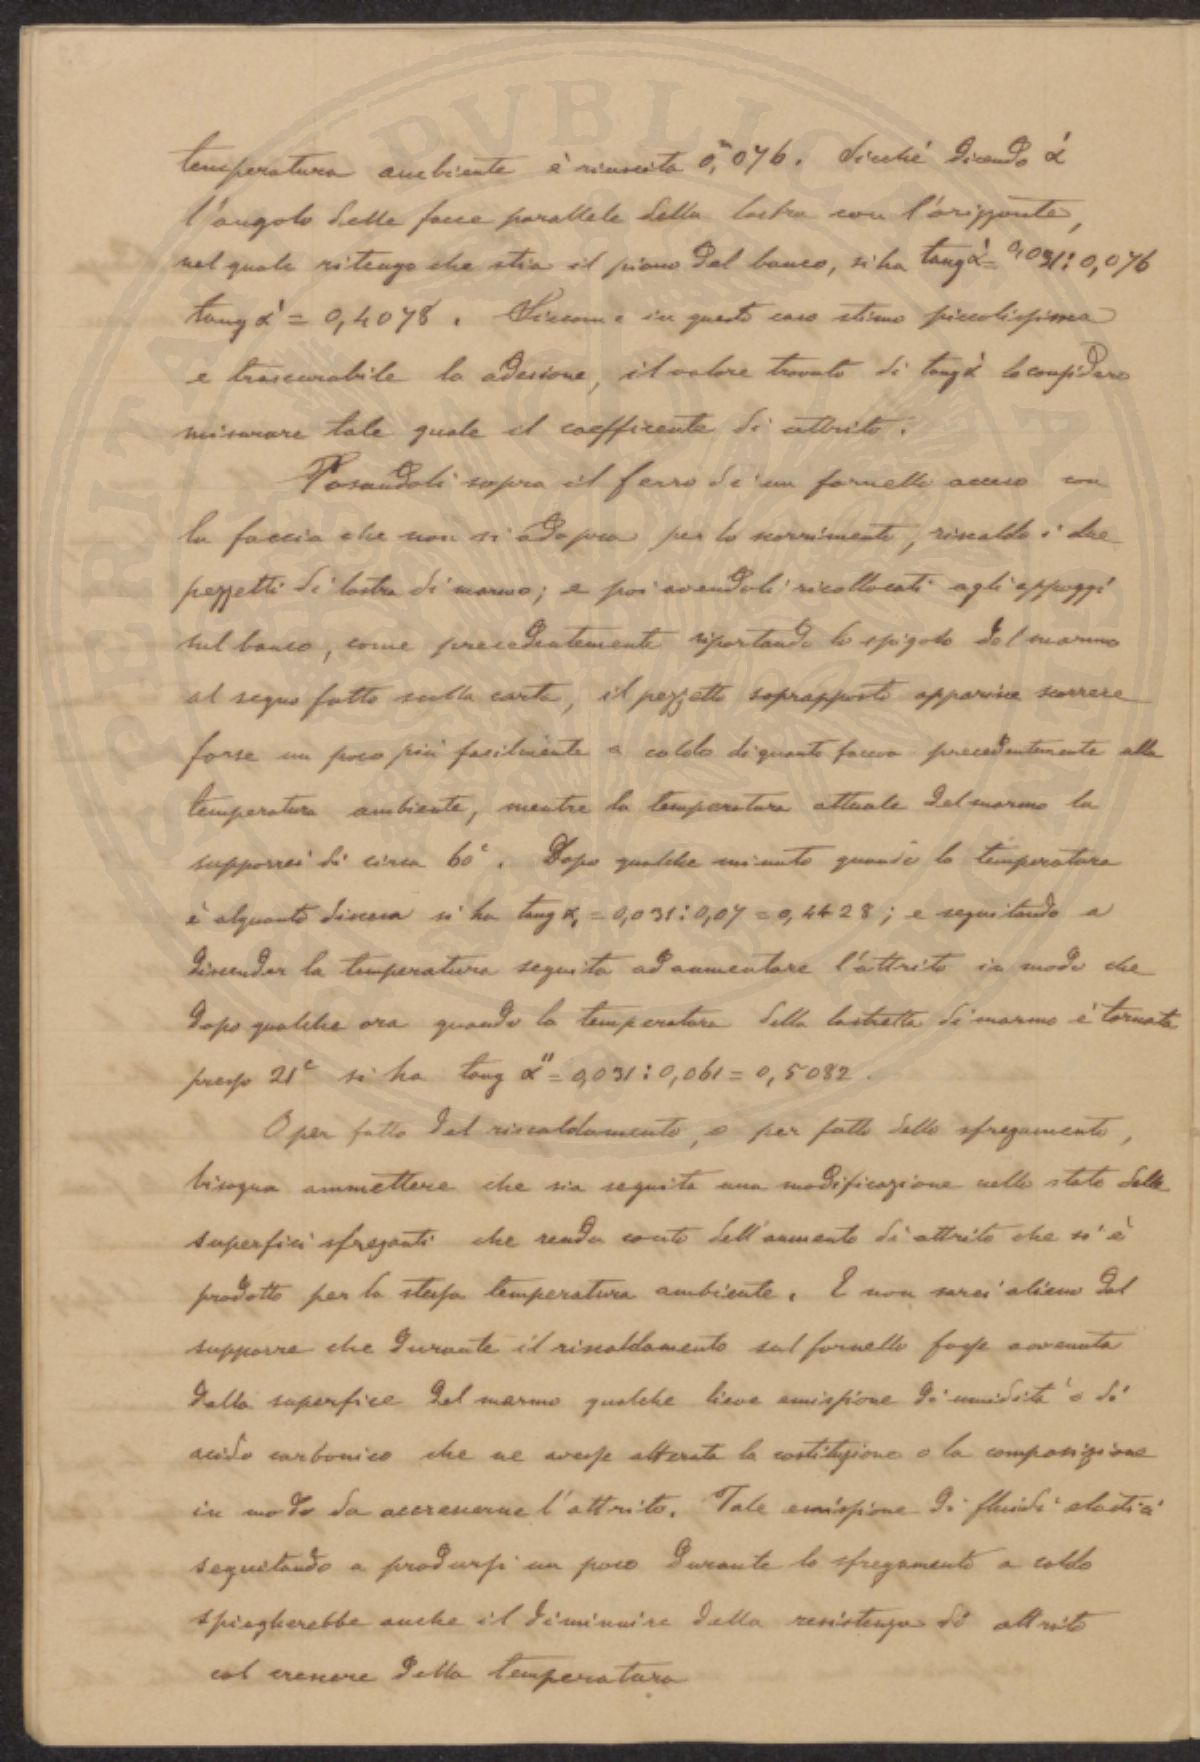 temperatura ambiente è riuscita 0,ᵐ076. Sicché dicendo α'
l'angolo delle facce parallele della lastra con l'orizzonte,
nel quale ritengo che stia il piano del banco, si ha tang α' = 0,031 : 0,076
tang α' = 0,4078. Siccome in questo caso stimo piccolissima
e trascurabile la adesione, il valore trovato di tang α' lo considero
misurare tale quale il coefficente di attrito.
Posandoli sopra il ferro di un fornello acceso con
la faccia che non si adopra per lo scorrimento, riscaldo i due
pezzetti di lastra di marmo; e poi avendoli ricollocati agli appoggi
sul banco, come precedentemente riportando lo spigolo del marmo
al segno fatto sulla carta, il pezzetto soprapposto apparisce scorrere
forse un poco più facilmente a caldo di quanto faceva precedentemente alla
temperatura ambiente, mentre la temperatura attuale del marmo la
supporrei di circa 60°. Dopo qualche minuto quando la temperatura
è alquanto discesa si ha tang α, = 0,031 : 0,07 = 0,4428; e seguitando a
discender la temperatura seguita ad aumentare l'attrito in modo che
dopo qualche ora quando la temperatura della lastretta di marmo è tornata
presso 21° si ha tang α" = 0,031 : 0,061 = 0,5082.
O per fatto del riscaldamento, o per fatto dello sfregamento,
bisogna ammettere che sia seguita una modificazione nello stato delle
superfici sfreganti che renda conto dell'aumento di attrito che si è
prodotto per la stessa temperatura ambiente. E non sarei alieno dal
supporre che durante il riscaldamento sul fornello fosse avvenuta
dalla superfice del marmo qualche lieve emissione di umidità o di
acido carbonico che ne avesse alterata la costituzione o la composizione
in modo da accrescerne l'attrito. Tale emissione di fluidi elastici
seguitando a prodursi un poco durante lo sfregamento a caldo
spiegherebbe anche il diminuire della resistenza di attrito
col crescere della temperatura